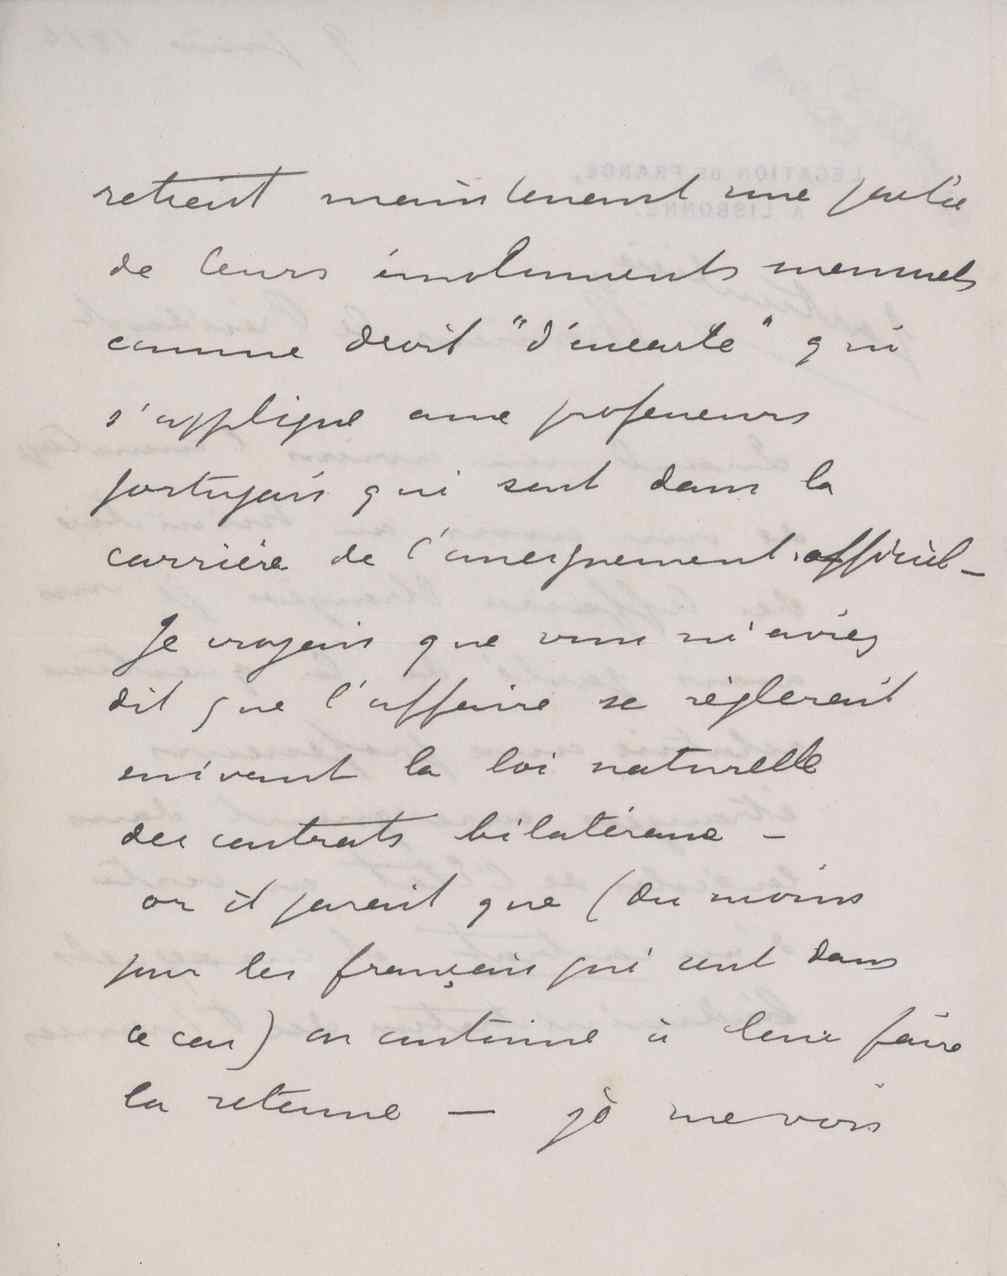 retient maintenant une partie
de leurs émoluments mensuels
comme droit "d'encarte" qui
s'applique aux professeurs
portugais qui sont dans la
carrière de l'enseignement officiel –
Je croyais que vous m'aviez
dit que l'affaire se règlerait
suivant la loi naturelle
des contrats bilatéraux –
or il parait que (du moins
pour les français qui sont dans
ce cas) on continue à leur faire
la retenue — je me vois
LEGATION DE FRANCE,
A LISBONNE.